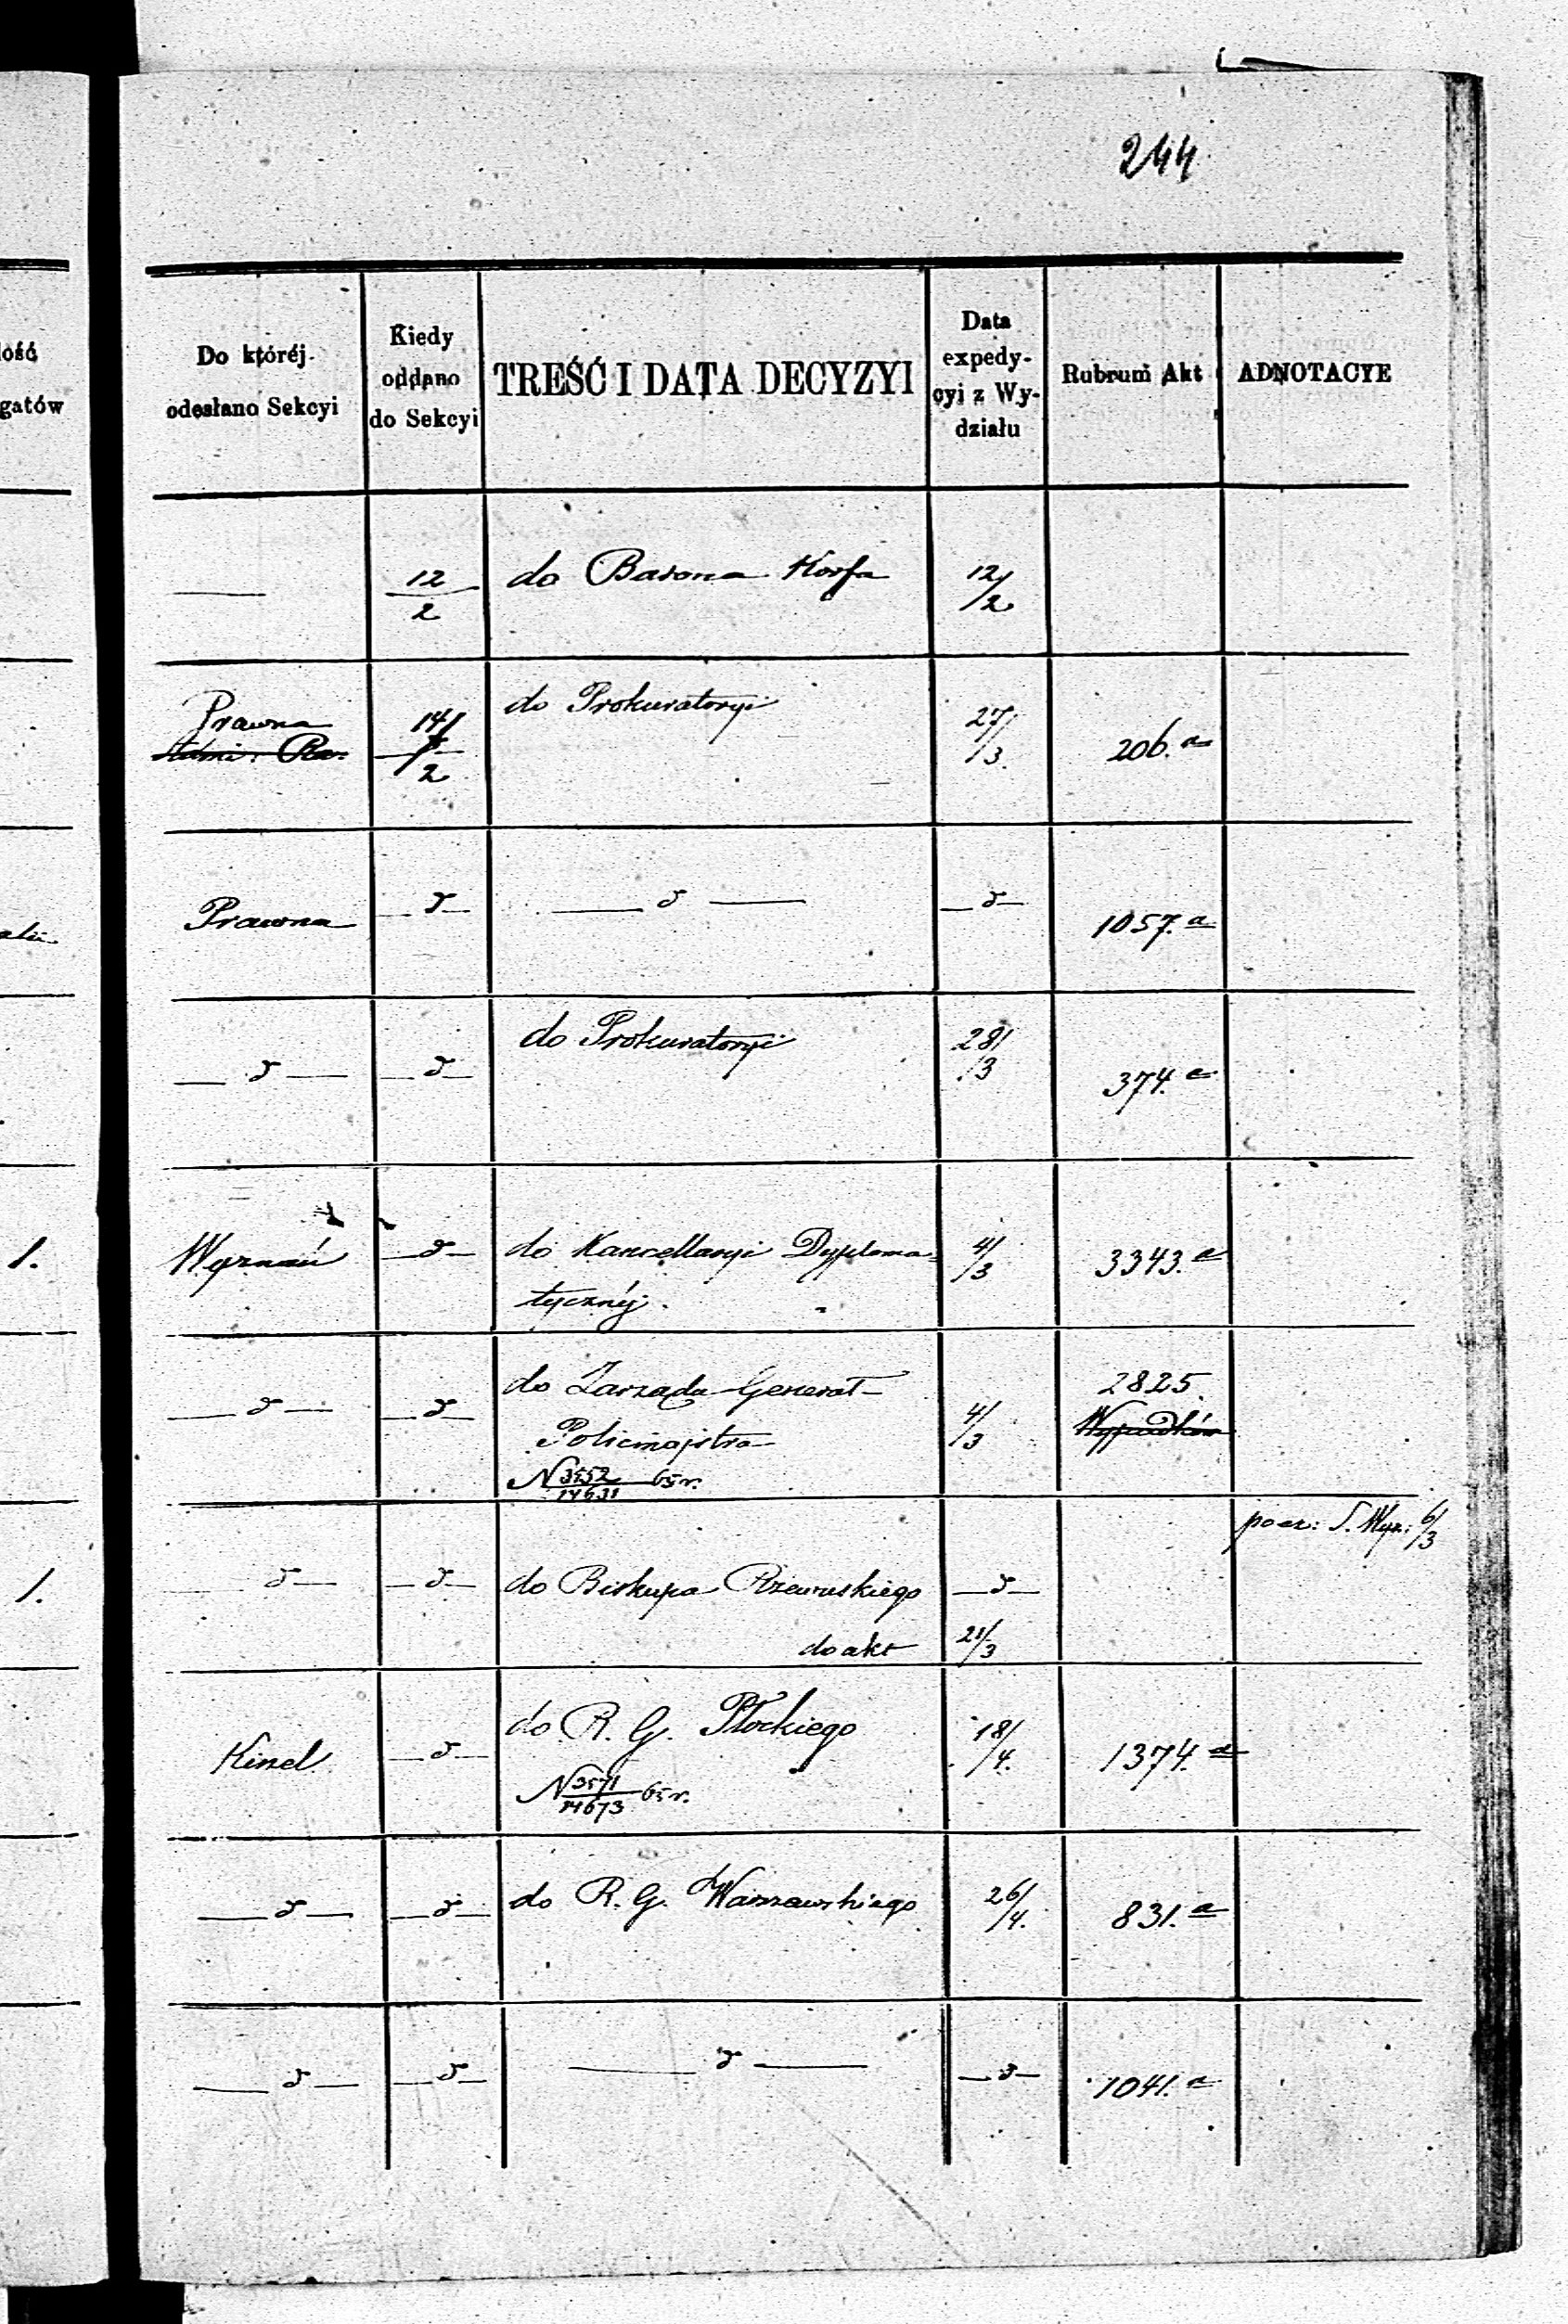 244
lość
gatów
Do któréj
odesłano Sekcyi
Kiedy
oddano
do Sekcyi
TREŚĆ I DATA DECYZYI
Data
expedy-
cyi z Wy-
działu
Rubrum Akt
ADNOTACYE
12/2 do Barona Korfa 12/2
Prawna 14/2 do Prokuratoryi 27/3. 206.a
Prawna — d — — d — — d — 1057.a
— d — — d — do Prokuratoryi 28/3 374.a
1. Wyznań — d — do Kancellaryi Dyploma= 4/3 3343.a
tycznéj.
— d — — d — do Zarządu Generał- 4/3 2825.
Policmajstra Wypadków
N 3552/14631 65 r.
pocz: S. Wyz: 6/3
1. — d — — d — do Biskupa Rzewuskiego — d —
do akt 21/3
Kinel — d — do R. G. Płockiego 18/4. 1374.a
N 3571/14673 65 r.
— d — — d — do R. G. Warszawskiego 26/4. 831.a
— d — — d — — d — — d — 1041.a